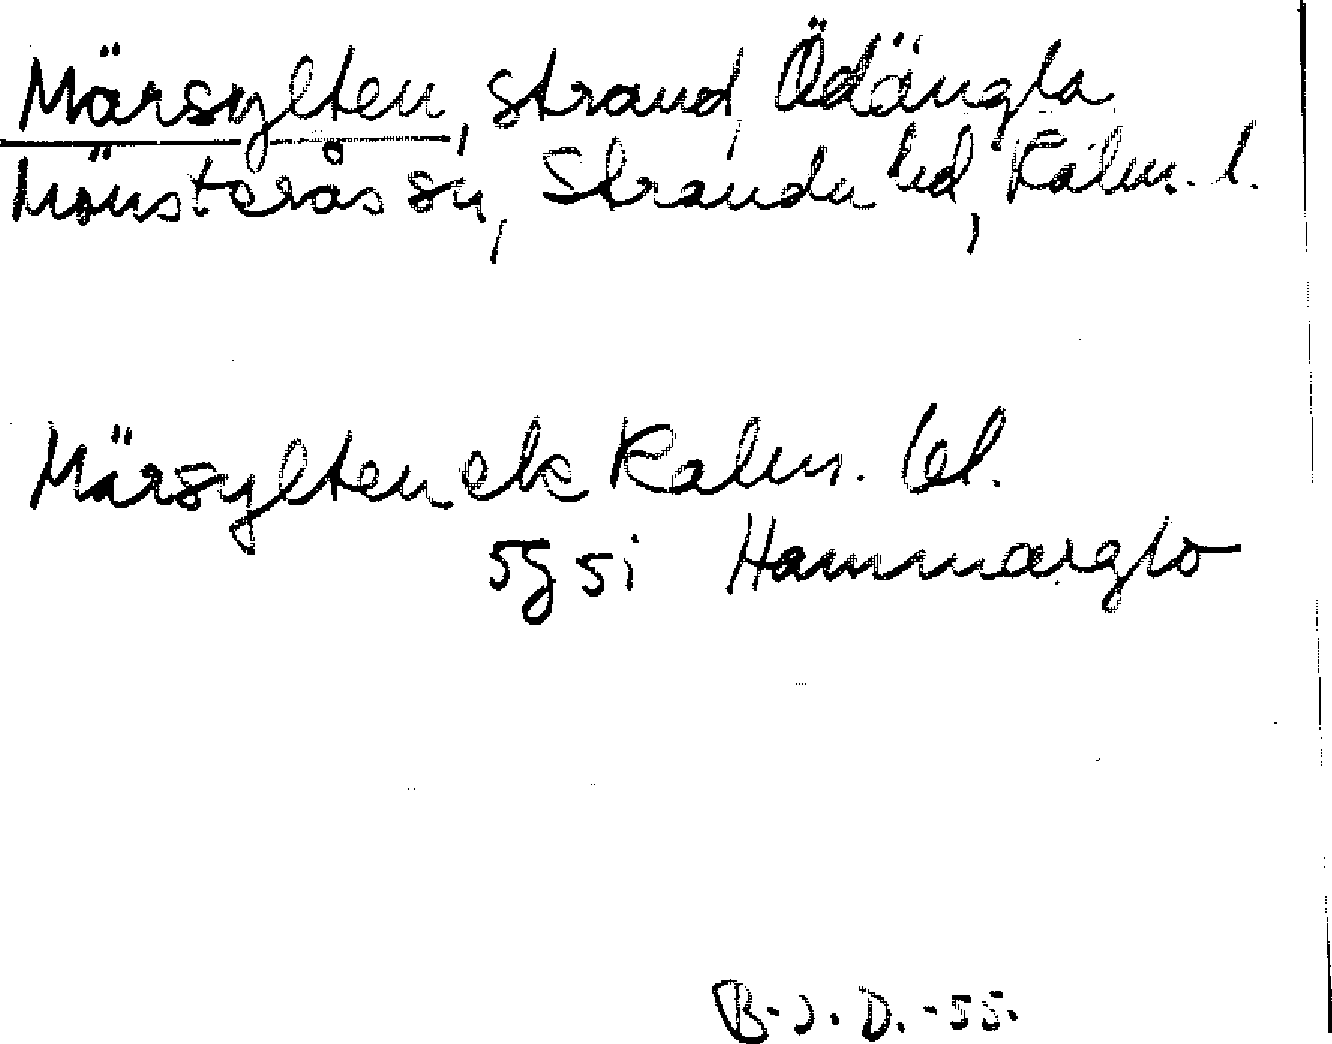 Märsylten, strand, Ödängla
Mönsterås sn, Stranda hd, Kalm. l.
Märsylten ek Kalm. bl.
5g5i Hammarglo
B.J.D. -55.